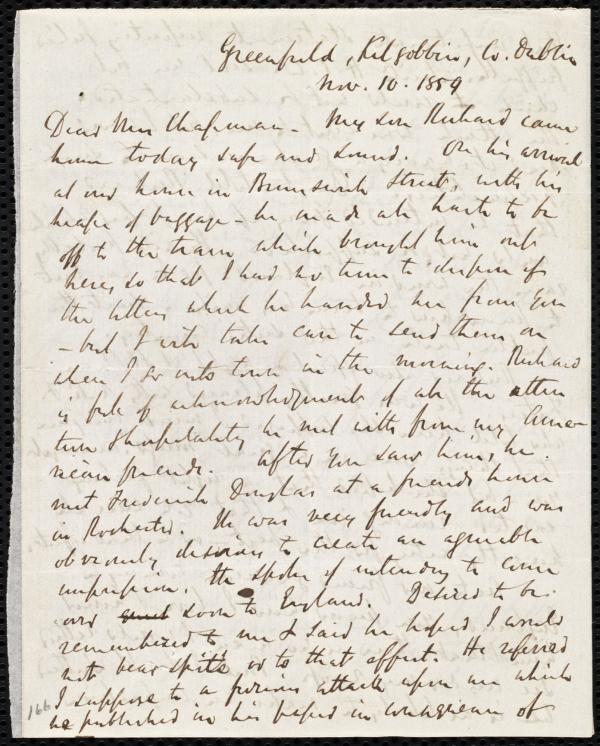 Greenfield, Kilgobbin, Co. Dublin
Nov. 10. 1859
Dear Mrs Chapman - My son Richard came
home today safe and sound. On his arrival
at our house in Brunswick Street, with his
heaps of baggage - he made all haste to be
off to the train which brought him out
here, so that I had no time to dispose of
the letters which he handed me from you
- but I will take care to send them on
when I go into town in the morning. Richard
is full of acknowledgments of all the atten
tion & hospitality he met with from my Ame-
rican friends. After you saw him, he
met Frederick Douglas at a friends house
in Rochester. He was very friendly and was
obviously desirous to create an agreeable
impression. He spoke of intending to come
over soon to England. Desired to be
remembered to me & said he hoped I would
not bear spite or to that effect. He referred
I suppose to a furious attack upon me which
he published in his paper in consequence of
166